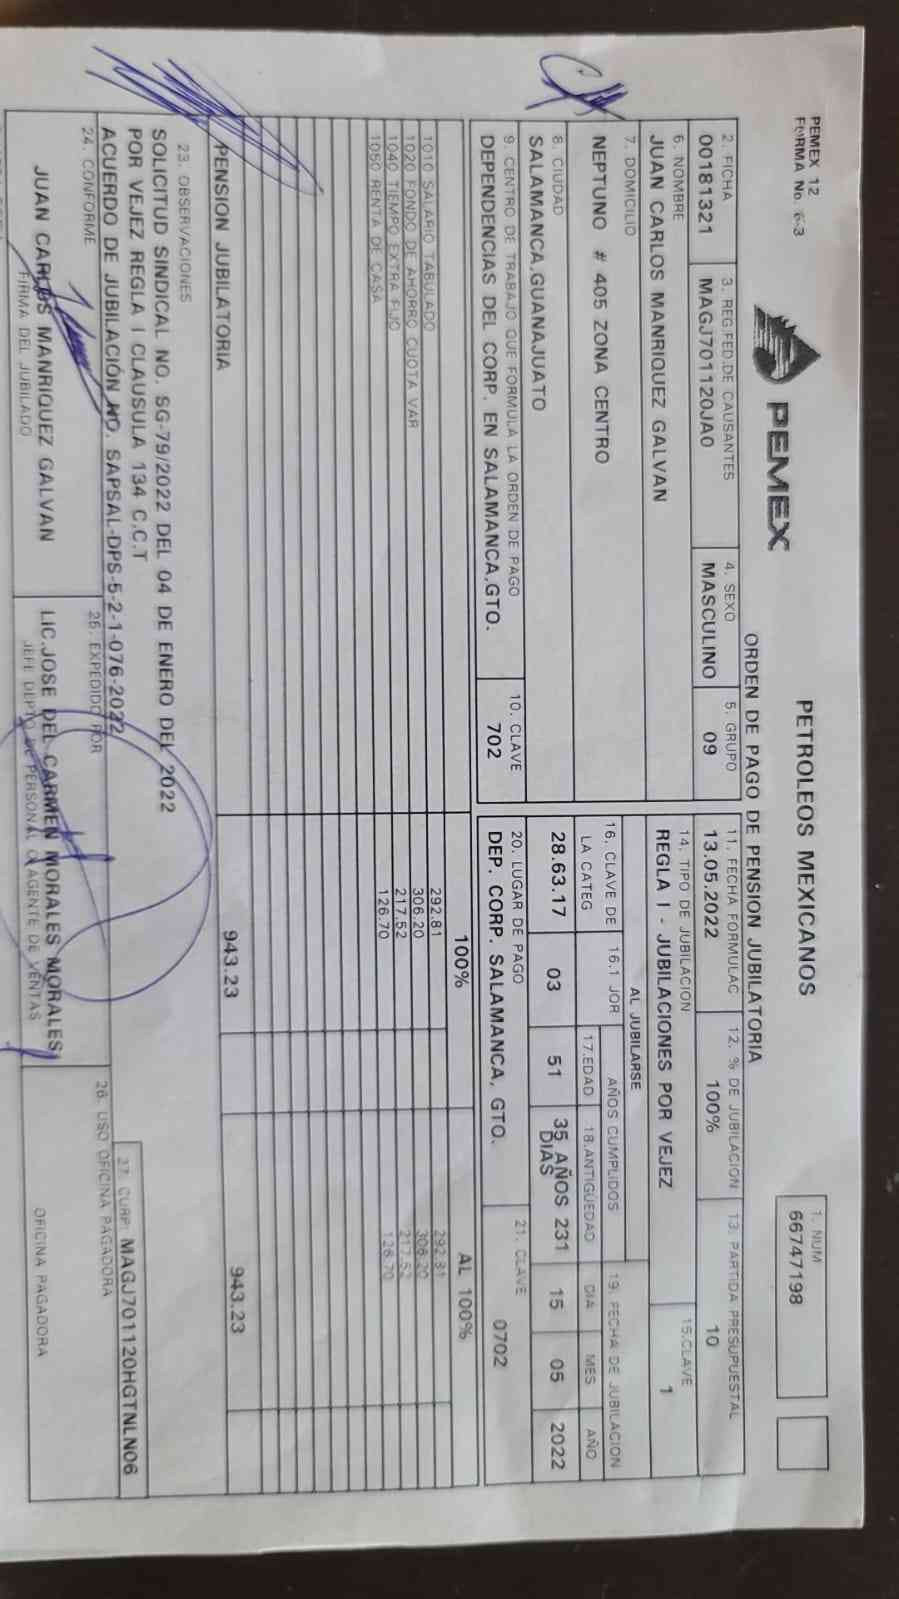 PEMEX 12
FORMA No. 6-3
PEMEX
PETROLEOS MEXICANOS
ORDEN DE PAGO DE PENSION JUBILATORIA
1. NUM
66747198
2. FICHA
00181321
3. REG.FED.DE CAUSANTES
MAGJ701120JA0
4. SEXO
MASCULINO
5. GRUPO
09
6. NOMBRE
JUAN CARLOS MANRIQUEZ GALVAN
7. DOMICILIO
NEPTUNO # 405 ZONA CENTRO
8. CIUDAD
SALAMANCA,GUANAJUATO
9. CENTRO DE TRABAJO QUE FORMULA LA ORDEN DE PAGO
DEPENDENCIAS DEL CORP. EN SALAMANCA,GTO.
10. CLAVE
702
11. FECHA FORMULAC
13.05.2022
12. % DE JUBILACION
100%
13. PARTIDA PRESUPUESTAL
10
14. TIPO DE JUBILACION
REGLA I - JUBILACIONES POR VEJEZ
15.CLAVE
1
AL JUBILARSE
16. CLAVE DE
LA CATEG
28.63.17
16.1 JOR
03
AÑOS CUMPLIDOS
17.EDAD
51
18.ANTIGUEDAD
35 AÑOS 231
DIAS
19. FECHA DE JUBILACION
DIA MES AÑO
15 05 2022
20. LUGAR DE PAGO
DEP. CORP. SALAMANCA, GTO.
21. CLAVE
0702
100% AL 100%
1010 SALARIO TABULADO 292.81 292.81
1020 FONDO DE AHORRO CUOTA VAR 306.20 306.20
1040 TIEMPO EXTRA FIJO 217.52 217.52
1050 RENTA DE CASA 126.70 126.70
PENSION JUBILATORIA 943.23 943.23
23. OBSERVACIONES
SOLICITUD SINDICAL NO. SG-79/2022 DEL 04 DE ENERO DEL 2022
POR VEJEZ REGLA I CLAUSULA 134 C.C.T
ACUERDO DE JUBILACIÓN NO. SAPSAL-DPS-5-2-1-076-2022
27. CURP: MAGJ701120HGTNLN06
24. CONFORME
JUAN CARLOS MANRIQUEZ GALVAN
FIRMA DEL JUBILADO
25. EXPEDIDO POR
LIC.JOSE DEL CARMEN MORALES MORALES
JEFE DEPTO DE PERSONAL O AGENTE DE VENTAS
26. USO OFICINA PAGADORA
OFICINA PAGADORA